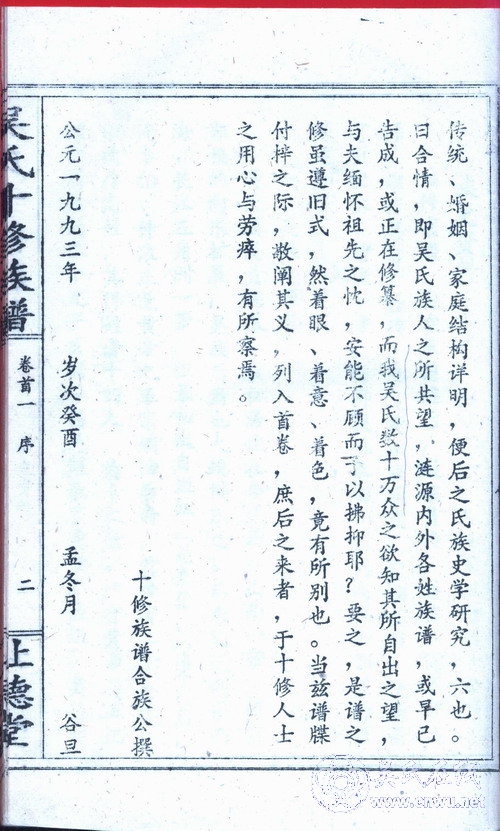 传统、婚姻、家庭结构详明，便后之氏族史学研究，六也。
曰合情，即吴氏族人之所共望，涟源内外各姓族谱，或早已
告成，或正在修纂，而我吴氏数十万众之欲知其所自出之望，
与夫缅怀祖先之忱，安能不顾而予以拂抑耶？要之，是谱之
修虽遵旧式，然着眼、着意、着色，竟有所别也。当兹谱牒
付梓之际，敬阐其义，列入首卷，庶后之来者，于十修人士
之用心与劳瘁，有所察焉。
十修族谱合族公撰
公元一九九三年 岁次癸酉 孟冬月 谷旦
吴氏十修族谱 卷首一 序 二 上德堂
吴氏在线
www.cnwu.net